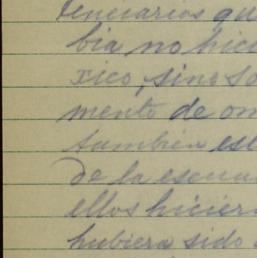 tenciarios qu
bia no hici
xico, sino so
mento de om
también est
de la escua
ellos hiciera
hubiera sido